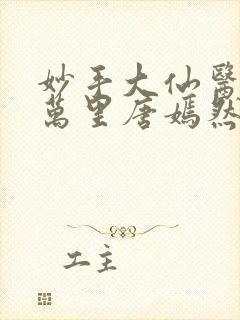 妙手大仙醫
萬里唐嫣然
工主